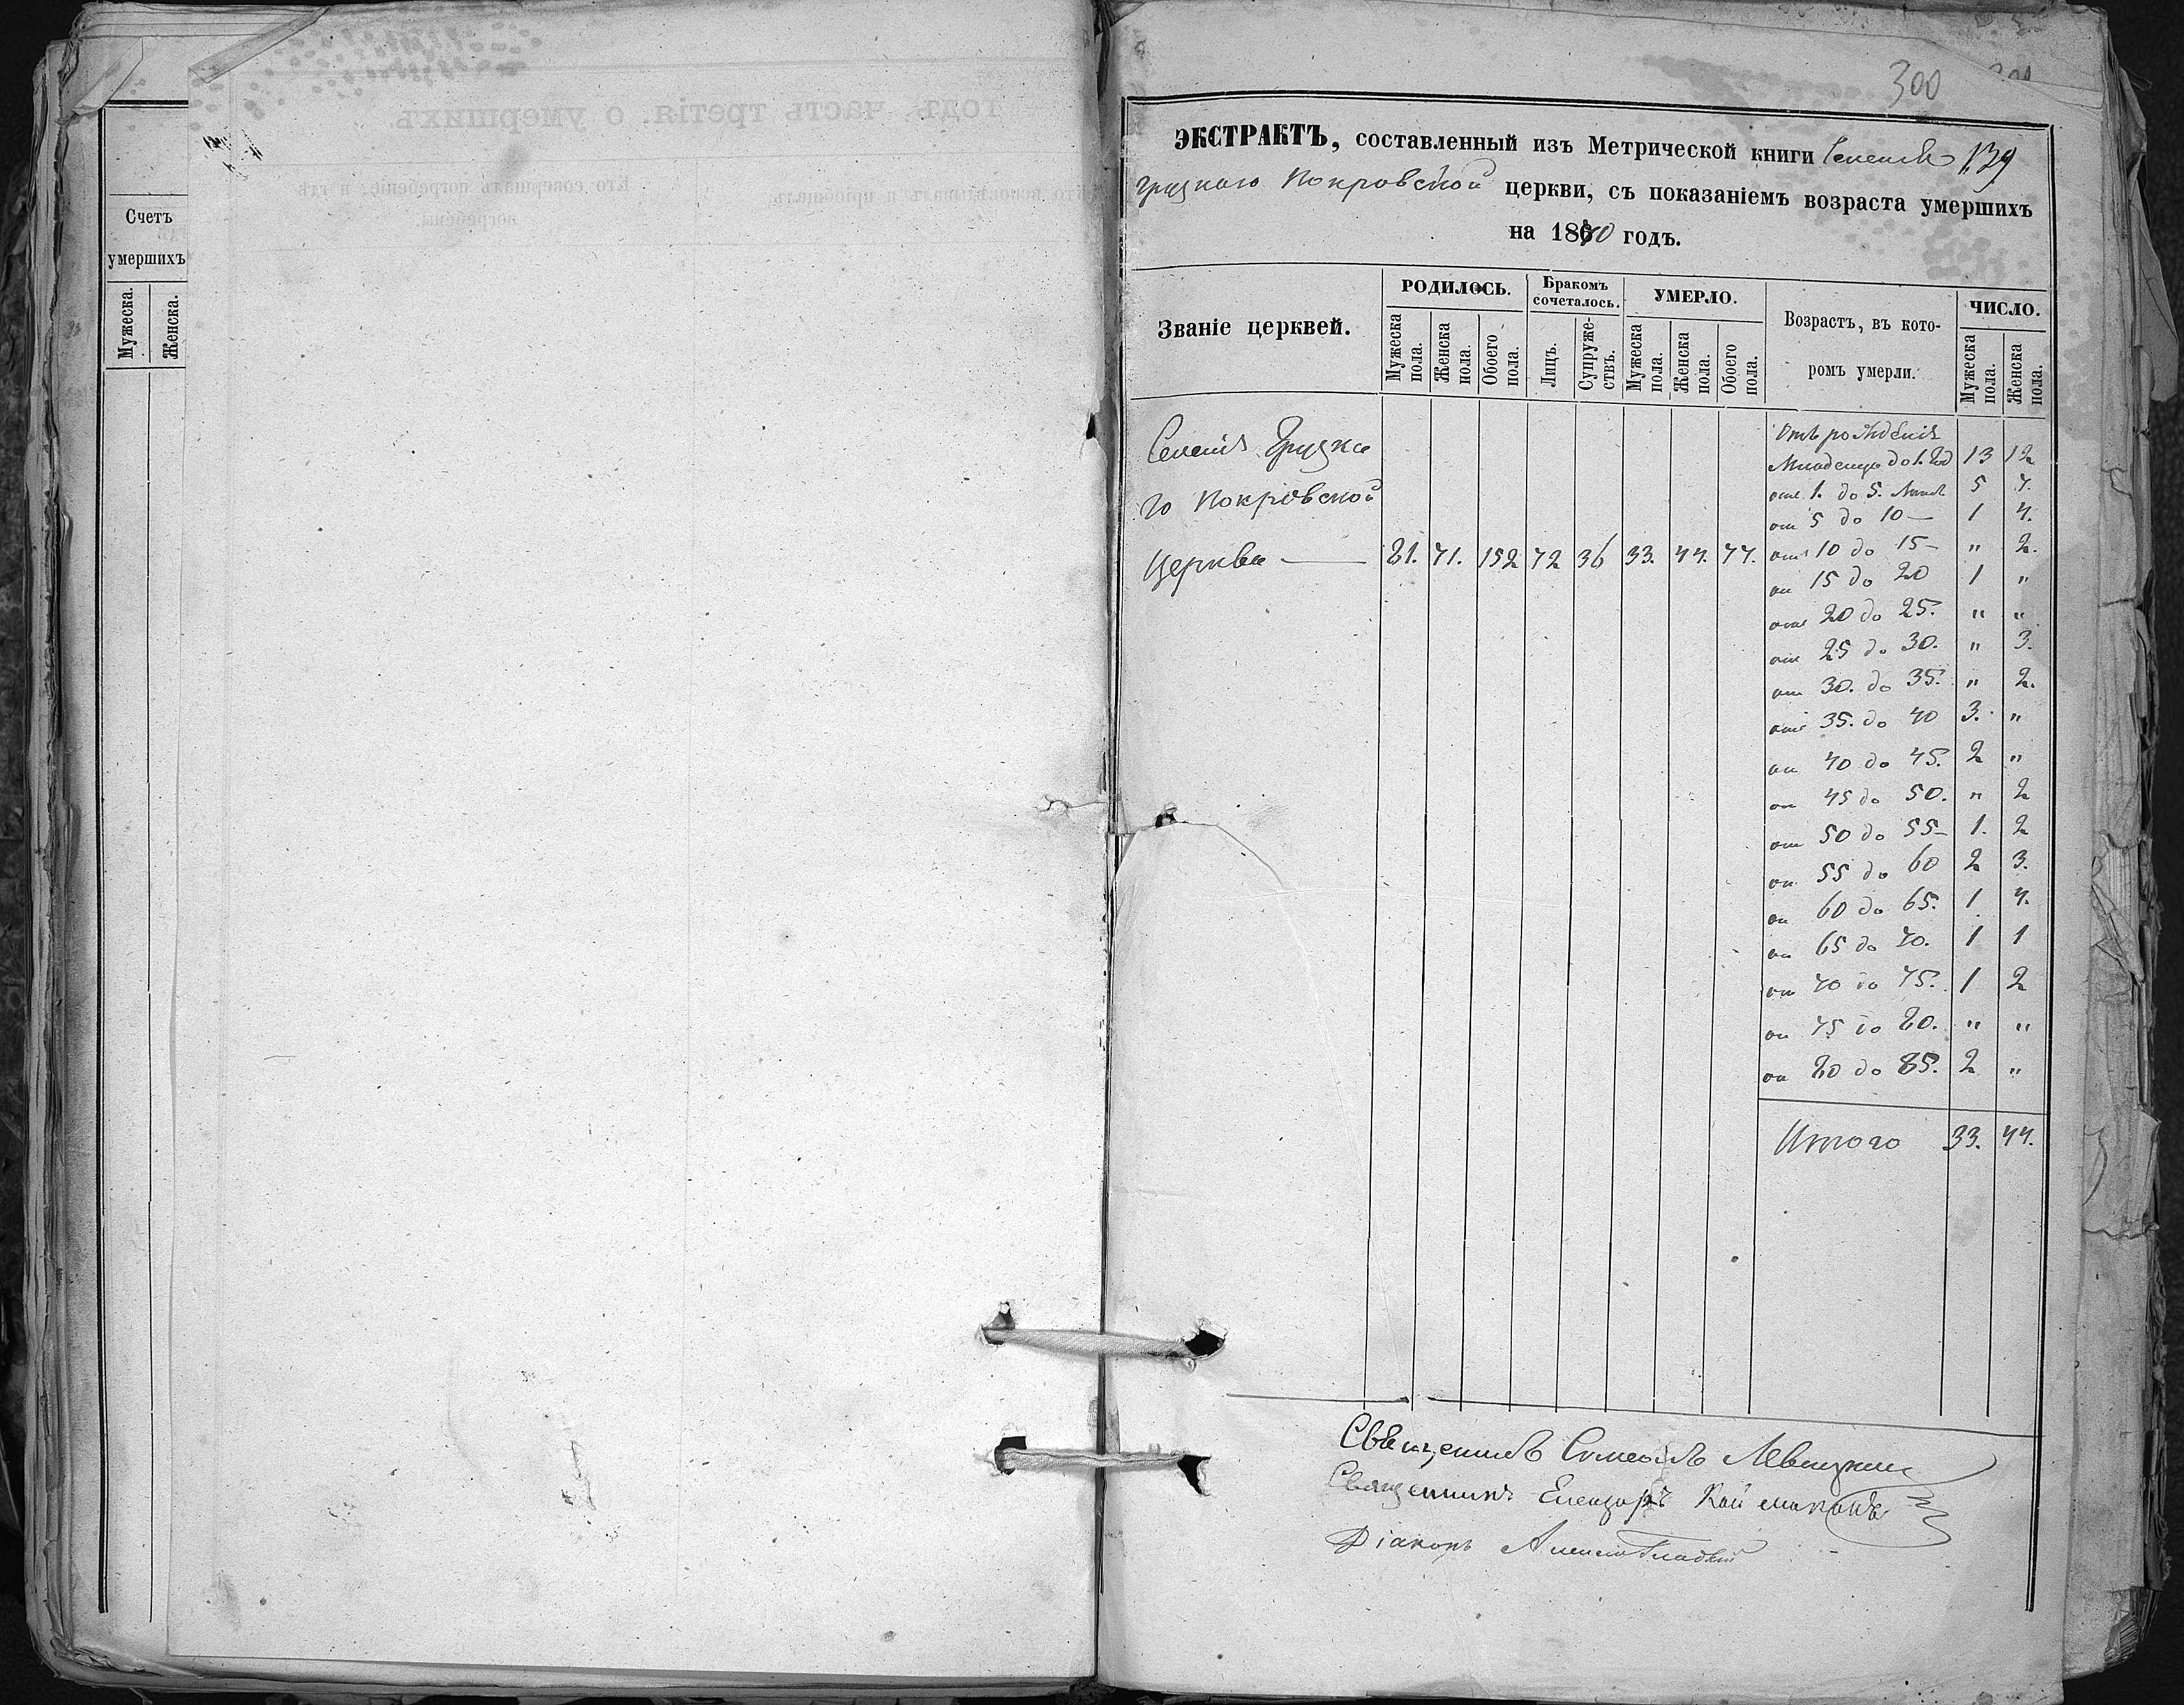 300
ЭКСТРАКТЪ, составленный изъ Метрической книги Селенія 139
Грузкаго Покровской церкви, съ показаніемъ возраста умершихъ
на 1870 годъ.
Счетъ
умершихъ
Мужеска.
Женска.
Званіе церквей.
РОДИЛОСЬ.
Мужеска пола.
Женска пола.
Обоего пола.
Бракомъ сочеталось.
Лицъ.
Супружествъ.
УМЕРЛО.
Мужеска пола.
Женска пола.
Обоего пола.
Возрастъ, въ кото-
ромъ умерли.
ЧИСЛО.
Мужеска пола.
Женска пола.
Селенія Грузка
го Покровской
Церкви — 81. 71. 152 72 36 33. 44. 77.
Отъ рожденія
Младенцы до 1. год 13 12
отъ 1. до 5. лѣтъ 5 7.
от 5 до 10 — 1 4.
отъ 10 до 15 — " 2.
от 15 до 20 1 "
отъ 20 до 25. " "
от 25 до 30. " 3.
от 30. до 35. " 2.
отъ 35. до 40 3. "
от 40 до 45. 2 "
от 45 до 50. " 2
от 50 до 55 — 1. 2
от 55 до 60 2 3.
от 60 до 65. 1. 4.
от 65 до 70. 1 1
от 70 до 75. 1 2
от 75 до 80. " "
от 80 до 85. 2 "
Итого 33. 44.
Священникъ Симеонъ Левицкій
Священникъ Елеазаръ Каймаканъ
Діаконъ Алексій Гладкій